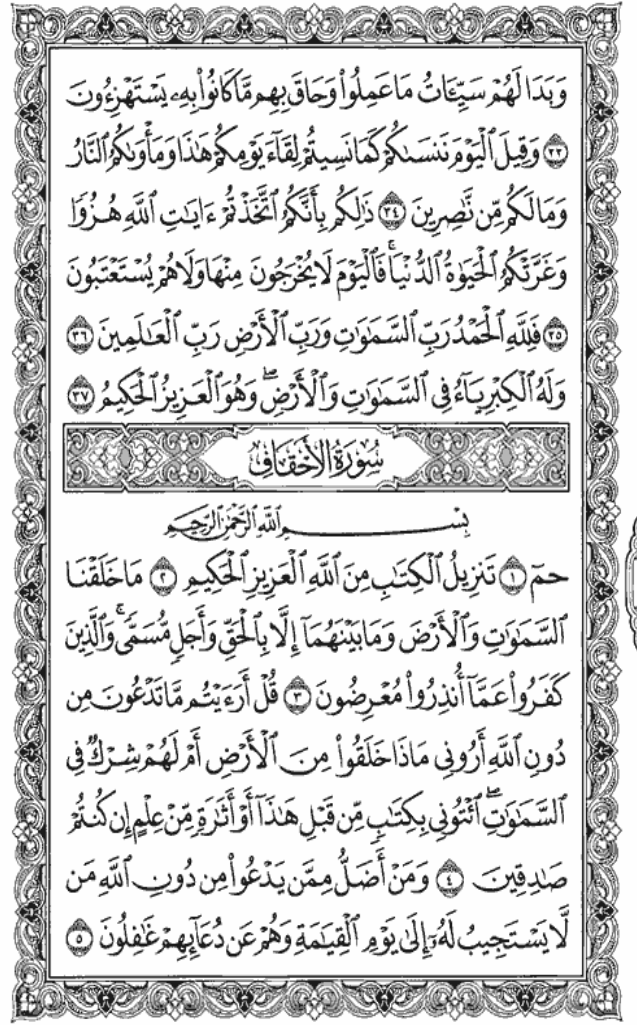 وَبَدَا لَهُمْ سَيِّـَٔاتُ مَا عَمِلُوا۟ وَحَاقَ بِهِم مَّا كَانُوا۟ بِهِۦ يَسْتَهْزِءُونَ
٣٣ وَقِيلَ ٱلْيَوْمَ نَنسَىٰكُمْ كَمَا نَسِيتُمْ لِقَآءَ يَوْمِكُمْ هَٰذَا وَمَأْوَىٰكُمُ ٱلنَّارُ
وَمَا لَكُم مِّن نَّٰصِرِينَ ٣٤ ذَٰلِكُم بِأَنَّكُمُ ٱتَّخَذْتُمْ ءَايَٰتِ ٱللَّهِ هُزُوًا
وَغَرَّتْكُمُ ٱلْحَيَوٰةُ ٱلدُّنْيَا ۚ فَٱلْيَوْمَ لَا يُخْرَجُونَ مِنْهَا وَلَا هُمْ يُسْتَعْتَبُونَ
٣٥ فَلِلَّهِ ٱلْحَمْدُ رَبِّ ٱلسَّمَٰوَٰتِ وَرَبِّ ٱلْأَرْضِ رَبِّ ٱلْعَٰلَمِينَ ٣٦
وَلَهُ ٱلْكِبْرِيَآءُ فِى ٱلسَّمَٰوَٰتِ وَٱلْأَرْضِ ۖ وَهُوَ ٱلْعَزِيزُ ٱلْحَكِيمُ ٣٧
سُورَةُ الأَحْقَافِ
بِسْمِ ٱللَّهِ ٱلرَّحْمَٰنِ ٱلرَّحِيمِ
حمٓ ١ تَنزِيلُ ٱلْكِتَٰبِ مِنَ ٱللَّهِ ٱلْعَزِيزِ ٱلْحَكِيمِ ٢ مَا خَلَقْنَا
ٱلسَّمَٰوَٰتِ وَٱلْأَرْضَ وَمَا بَيْنَهُمَآ إِلَّا بِٱلْحَقِّ وَأَجَلٍ مُّسَمًّى ۚ وَٱلَّذِينَ
كَفَرُوا۟ عَمَّآ أُنذِرُوا۟ مُعْرِضُونَ ٣ قُلْ أَرَءَيْتُم مَّا تَدْعُونَ مِن
دُونِ ٱللَّهِ أَرُونِى مَاذَا خَلَقُوا۟ مِنَ ٱلْأَرْضِ أَمْ لَهُمْ شِرْكٌ فِى
ٱلسَّمَٰوَٰتِ ۖ ٱئْتُونِى بِكِتَٰبٍ مِّن قَبْلِ هَٰذَآ أَوْ أَثَٰرَةٍ مِّنْ عِلْمٍ إِن كُنتُمْ
صَٰدِقِينَ ٤ وَمَنْ أَضَلُّ مِمَّن يَدْعُوا۟ مِن دُونِ ٱللَّهِ مَن
لَّا يَسْتَجِيبُ لَهُۥٓ إِلَىٰ يَوْمِ ٱلْقِيَٰمَةِ وَهُمْ عَن دُعَآئِهِمْ غَٰفِلُونَ ٥